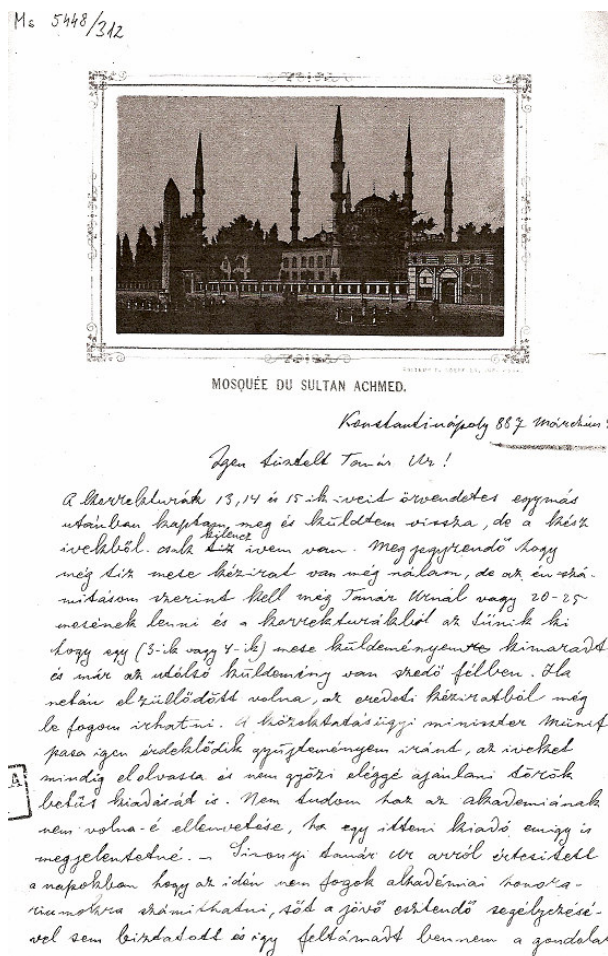 Ms 5448/312
MOSQUÉE DU SULTAN ACHMED.
Konstantinápoly 887 Március
Igen tisztelt Tanár Ur!
A korrekturák 13, 14 és 15-ik iveit örvendetes egymás
utánban kaptam meg és küldtem vissza, de a kész
ivekből csak tiz kilencz ivem van. Megjegyzendő hogy
még tiz mese kézirat van még nálam, de az én szá-
mitásom szerint kell még Tanár Urnál vagy 20-25
mesének lenni és a korrekturákból az tűnik ki
hogy egy (3-ik vagy 4-ik) mese küldeményem kimaradt
és már az utolsó küldemény van szedő félben. Ha
netán elzüllődött volna, az eredeti kéziratból még
le fogom irhatni. A közoktatásügyi miniszter Münif
pasa igen érdeklődik gyüjteményem iránt, az iveket
mindig elolvassa és nem győzi eléggé ajánlani török
betüs kiadását is. Nem tudom haz az akadémiának
nem volna-é ellenvetése, ha egy itteni kiadó emigy is
megjelentetné. – Simonyi tanár ur arról értesitett
a napokban hogy az idén nem fogok akadémiai honora-
riumokra számithatni, sőt a jövő esztendő segélyezésé-
vel sem biztatott és igy feltámadt bennem a gondolat
A